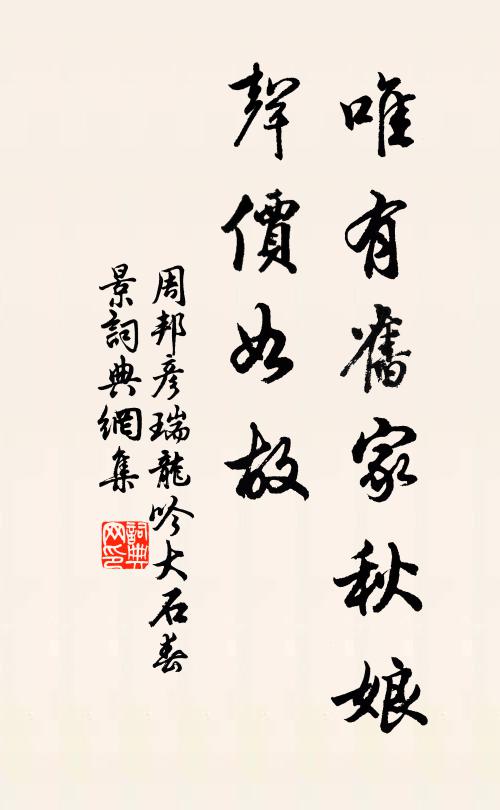 唯有舊家秋娘
聲價如故
周邦彥瑞龍吟大石春
景詞典網集
詞典
网印